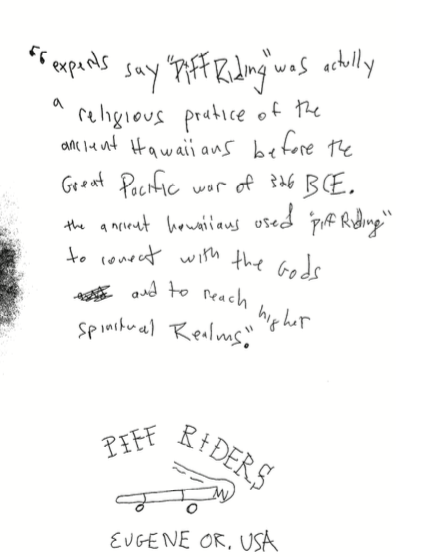 "experts say "Piff Riding" was actully
a religious pratice of the
ancient Hawaiians before the
Great Pacific war of 326 BCE.
the ancient hawaiians used "piff Riding"
to conect with the Gods
and to reach higher
Spiritual Realms."
PIFF RIDERS
EUGENE OR, USA